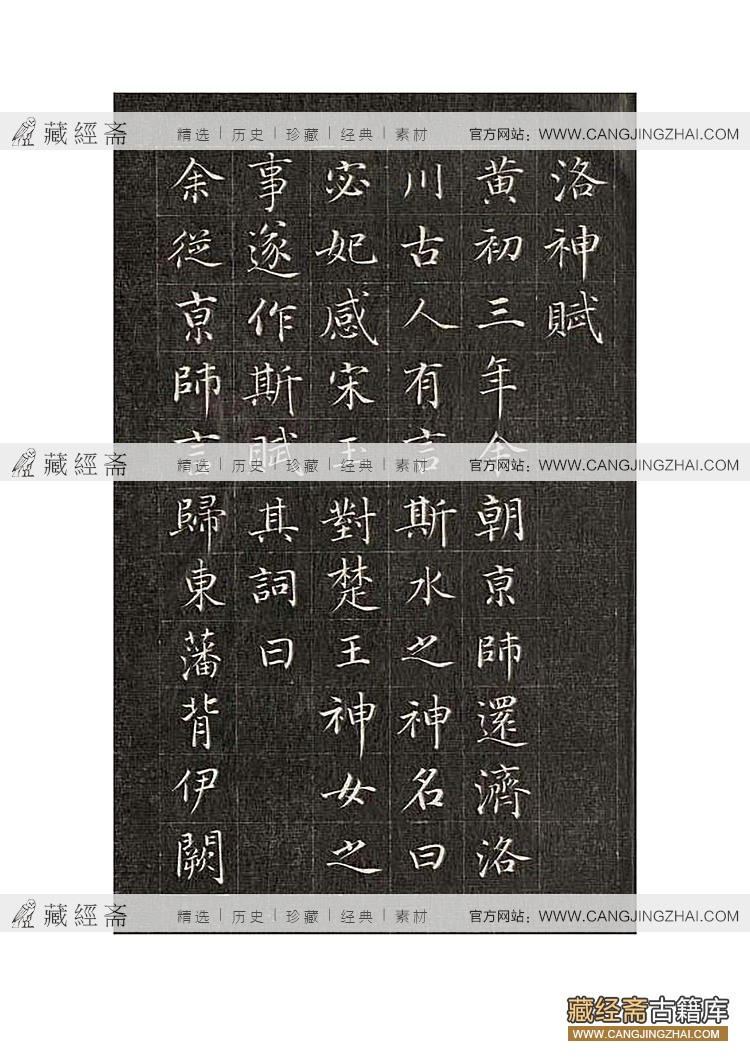 藏經斋 精选 历史 珍藏 经典 素材 官方网站：WWW.CANGJINGZHAI.COM
洛神賦
黄初三年余朝亰師還濟洛
川古人有言斯水之神名曰
宓妃感宋玉對楚王神女之
事遂作斯賦其詞曰
余從亰師言歸東藩背伊闕
藏經斋 精选 历史 珍藏 经典 素材 官方网站：WWW.CANGJINGZHAI.COM
藏經斋 精选 历史 珍藏 经典 素材 官方网站：WWW.CANGJINGZHAI.COM
藏经斋古籍库
WWW.CANGJINGZHAI.COM